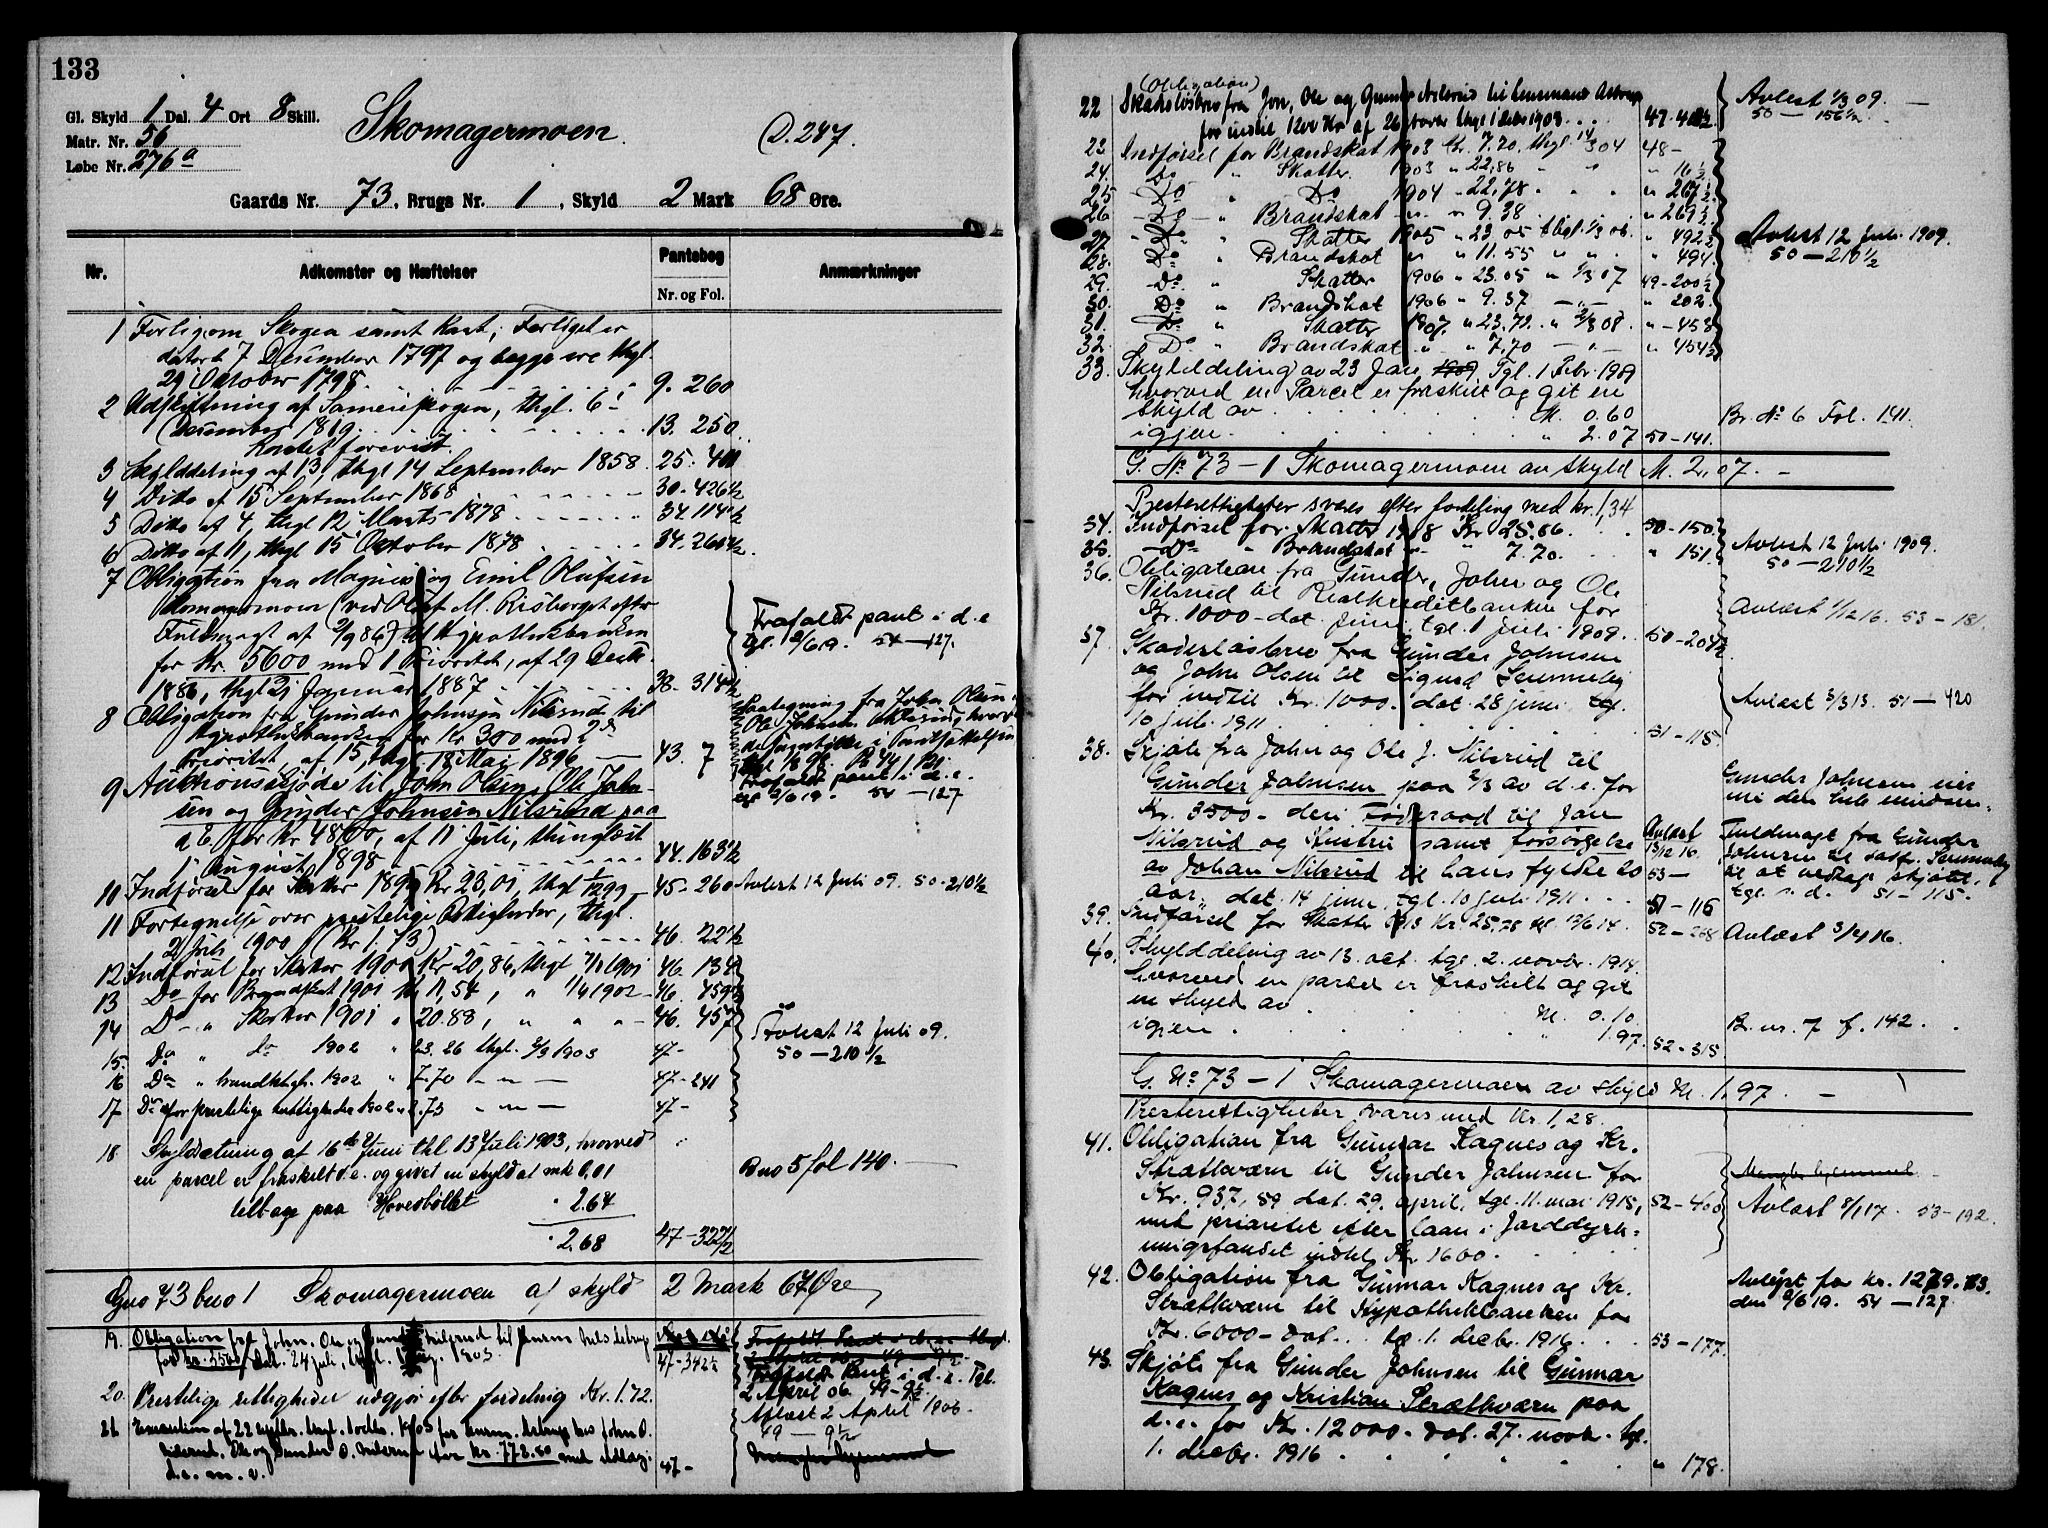 133
Gl. Skyld 1 Dal. 4 Ort 8 Skill.
Matr. Nr. 56
Løbe Nr. 276a
Skomagermoen.
D. 247.
Gaards Nr. 73, Brugs Nr. 1, Skyld 2 Mark 68 Øre.
Nr. Adkomster og Hæftelser Pantebog Anmærkninger
Nr. og Fol.
1 Forlig om Skogen samt Kart; Forliget er
dateret 7 December 1797 og begge ere thgl.
29 October 1798. 9. 260
2 Udskiftning af Sameieskogen, thgl. 6
December 1819. 13. 250
Kartet forevist.
3 Skylddeling af 13, thgl 14 September 1858. 25. 411
4 Ditto af 15 September 1868 30. 426 1/2
5 Ditto af 4, thgl 12 Marts 1878 34. 114 1/2
6 Ditto af 11, thgl 15 October 1878 34. 260 1/2
7 Obligation fra Magnus og Emil Olufsen
Skomagermoen (ved Oluf M. Risberget efter
Fuldmagt af 2/9 86) til Hypothekbanken
for Kr. 5600 med 1 Prioritet, af 29 Decbr.
1886, thgl 2 Januar 1887 38. 314 1/2
Frafaldt pant i d. e
Tgl. 2/6 19. 54 — 127.
8 Obligation fra Gunder Johnsen Nilsrud til
Hypothekbanken for Kr 300 med 2den
Prioritet, af 15, thgl. 18 Mai 1896 43. 7
Paategning fra John Olsen
Ole Johnsen
Frafaldt pant i d. e.
Tgl 2/6 19. 54 — 127
9 Auktionsskjøde til John Olsen, Ole John-
sen og Gunder Johnsen Nilsrud paa
d. E. for Kr 4800, af 11 Juli, thinglæst
1 August 1898 44. 163 1/2
10 Indførsel for Skatter 1897 Kr 23,01, thgl 45 - 260 Avlest 12 Juli 09. 50 - 210 1/2
11 Fortegnelse over prestelige Rettigheder, thgl.
2 Juli 1900 (Kr 1.73) 46. 22 1/2
12 Indførsel for Skatter 1900 Kr 20,86, thgl 1901 46. 134
13 Do for Brandskat 1901 Kr 11,54, " 1/4 1902 46. 459
14 Do - " Skatter 1901 " 20.88, " " " - 46. 457
Avlest 12 Juli 09.
50 — 210 1/2
15. Do " do 1902 " 23.26 thgl. 2/3 1903 47 -
16 Do " brandktgt. 1902 " 7.70 - " — 47 - 241
17 Do for prestelige rettigheder 1902 " 2.73 " — 47 -
18 Skyldsetning af 16de Juni thl 13 Juli 1903, hvorved
en parcel er fraskilt d. e. og givet en skyld af mk 0.01
tilbage paa Hovedbøllet " 2.67
" 2.68 47 - 322 1/2
Bno 5 fol 140.
Gno 73 bno 1 Skomagermoen af skyld 2 Mark 67 Øre
19. Obligation fra John, Ole og Gunder Nilsrud til
dat. 24 juli, 1903 47 - 342 1/2
Frafaldt Pant i d. e. Tgl.
2 April 06 49 - 9 1/2
20. Prestelige rettigheder udgjør efter fordeling Kr. 1.72.
Aflæst 2 April 1906.
49 — 9 1/2
21. Execution af 22 thgl. 1903 hos John O.
Nilsrud, Ole og Gunder O. Nilsrud for Kr. 772.80 med udlæg i
d. e. m. v. 47 -
Mangler hjemmel
(Obligation)
22 Skadesløsbrev fra Jon, Ole og Gunder Nilsrud til lensmand Astrup
for indtil 1200 Kr. af 26 thgl 1 Decbr 1903 47 -
Avlest 1/3 09.
50 — 156 1/2
23 Indførsel for Brandskat 1903 Kr. 7.70, thgl 14/3 04 48 -
24. Do " Skatter. 1903 " 22,86 " " " 16 1/2
25 Do " Do 1904 " 22,78 " " " 267 1/2
26 - Do - " Brandskat " " 9.38 " 269 1/2
27 - Do " Skatter 1905 " 23.05 thgl. 1/3 06. " 492 1/2
28. Do " Brandskat " " 11.55 " " " 494
29. Do " Skatter 1906 " 23.05 " 1/3 07 49 - 200 1/2
30. Do " Brandskat 1906 " 9.37 — " — " 202
31. Do " Skatter 1907. " 23.72. " 2/3 08. " - 453
32. Do " Brandskat " " 7.70 — " — " 454 1/2
Avlest 12 Juli 1909.
50 — 210 1/2
33. Skylddeling av 23 Jan 1909 Tgl. 1 Febr. 1909
hvorved en Parcel er fraskilt og git en
skyld av M. 0.60
igjen. " 2.07 50 - 141.
Br. No 6 Fol. 141.
G. No 73 - 1 Skomagermoen av skyld M. 2.07. -
Presterettigheter svares efter fordeling med kr. 1,34
34. Indførsel for Skatter 1908 Kr 25.66. 50 - 150.
35. - Do - " Brandskat " " 7.70. " 151.
Avlest 12 Juli 1909.
50 — 210 1/2
36. Obligation fra Gunder, John og Ole
Nilsrud til Realkreditbanken for
Kr. 1000 - dat. juni, tgl. 1 juli 1909. 50 - 204 1/2
Avlæst 1/12 16. 53 - 181.
37. Skadesløsbrev fra Gunder Johnsen
og John Olsen til Sigurd Semmeby
for indtil Kr. 1000. dat. 28 juni tgl.
10 juli 1911 51 - 115.
Avlæst 3/3 13. 51 — 420
38. Skjøte fra John og Ole J. Nilsrud til
Gunder Johnsen paa 2/3 av d. e. for
Kr. 3500 - deri Føderaad til Jon
Nilsrud og Hustru samt forsørgelse
av Johan Nilsrud til hans fyldte 20
aar, dat. 14 juni, tgl. 10 juli 1911 51 - 116
Avlæst
13/12 16.
53 —
Gunder Johnsen eier
nu den hele eiendom.
Fuldmagt fra Gunder
Johnsen til sadf. Semmeby
til at vedtage skjøtet,
tgl. s. d. 51 - 115.
39. Indførsel for Skatter 1913 Kr. 25,78 tgl. 12/6 14. 52 - 268 Avlæst 3/4 16.
40. Skylddeling av 13. oct. tgl. 2. novbr. 1914.
hvorved en parcel er fraskilt og git
en skyld av M. 0.10.
igjen " 1.97. 52 - 315.
B. nr. 7 f. 142.
G. No 73 - 1 Skomagermoen av skyld M. 1,97. -
Presterettigheter svares med Kr. 1,28.
41. Obligation fra Gunnar Kagnes og Kr.
Strætkværn til Gunder Johnsen for
Kr. 937,59 dat. 29. april, tgl. 11. mai 1915, 52 - 400
med prioritet efter laan i Jorddyrk=
ningsfondet indtil Kr. 1600.
Mangler hjemmel
Avlæst 8/1 17. 53 - 192.
42. Obligation fra Gunnar Kagnes og Kr.
Strætkværn til Hypothekbanken for
Kr. 6000 - dat. tgl. 1. decbr. 1916 53 - 177.
Avlyst for kr. 1279.73.
den 2/6 19. 54 — 127.
43. Skjøte fra Gunder Johnsen til Gunnar
Kagnes og Kristian Strætkværn paa
d. e. for Kr. 12000. dat. 27. novbr. tgl.
1. decbr. 1916 " 178.